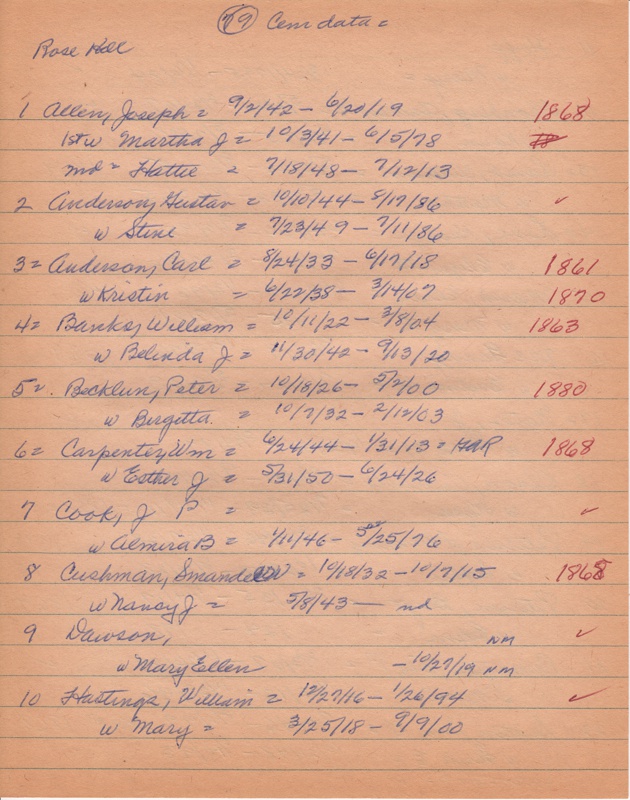 79 Cem data =
Rose Hill
1 Allen, Joseph = 9/2/42 - 6/20/19 1868
1st w Martha J = 10/3/41 - 6/5/78
md = Hattie = 7/18/48 - 7/12/13
2 Anderson, Gustav = 10/10/44 - 8/17/86 ✓
w Stine = 7/23/49 - 7/11/86
3 = Anderson, Carl = 8/24/33 - 6/17/18 1861
w Kristin = 6/22/38 - 3/14/07 1870
4 = Banks, William = 10/11/22 - 3/8/04 1863
w Belinda J. = 11/30/42 - 9/13/20
5 =. Becklun, Peter = 10/18/26 - 5/2/00 1880
w Bergetta. = 10/7/32 - 2/12/03
6 = Carpenter, Wm = 6/24/44 - 1/31/13 = GAR 1868
w Esther J = 5/31/50 - 6/24/26
7 Cook, J P = ✓
w Almira B = 1/11/46 - 5/25/76
8 Cushman, = 10/18/32 - 10/7/15 1868
w Nancy J = 5/8/43 - nd
9 Dawson, NM ✓
w Mary Ellen - 10/27/19 NM
10 Hastings, William = 12/27/16 - 1/26/94 ✓
w Mary = 3/25/18 - 9/9/00